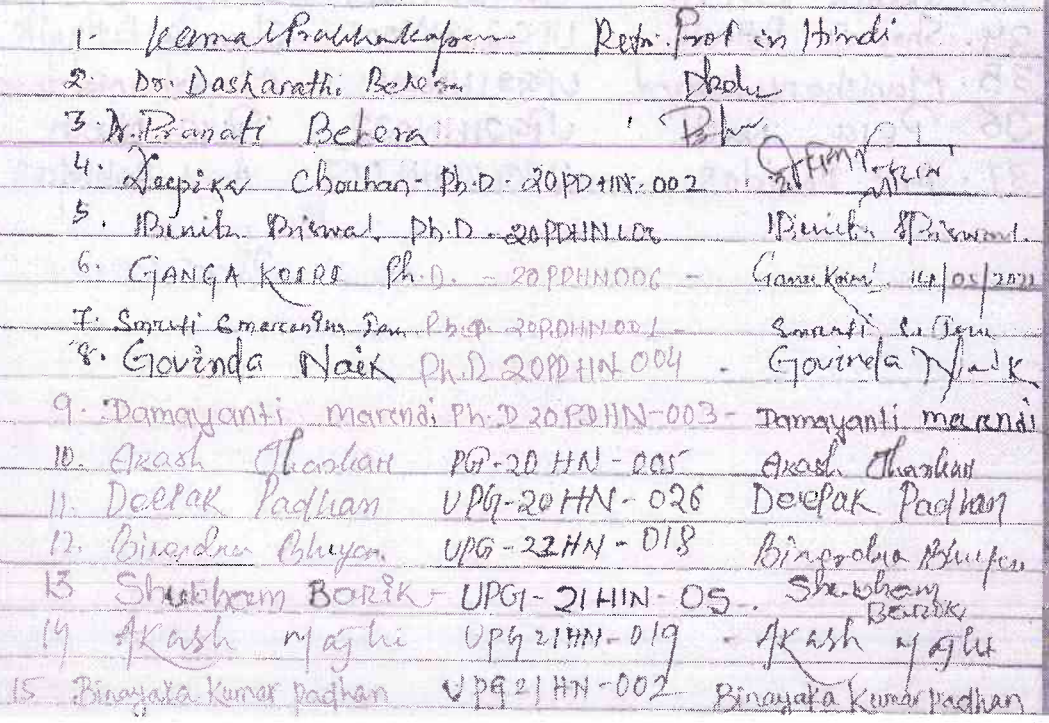 1. Kamal Prabha Kapani Retr. Prof in Hindi
2. Dr. Dasharathi Behera
3. Dr. Pranati Behera
4. Deepika Chouhan Ph.D. 20PDHN-002
5. Binita Biswal. Ph.D - Binita Biswal.
6. GANGA KOIRI Ph.D. - 20PDHN006 - Ganga Koiri
7. Smruti Ph.D 20PDHN001 - Smruti
8. Govinda Naik Ph.D 20PDHN 004 - Govinda Naik
9. Damayanti marandi Ph.D 20PDHN-003 - Damayanti marandi
10. Akash PG-20 HN-005 Akash
11. Deepak Padhan UPG-20HN-026 Deepak Padhan
12. Birendra Bhuyan UPG-22HN-018 Birendra Bhuyan
13 Shubham BARIK - UPG-21HIN-05. Shubham
BARIK
14 AKash Majhi UPG21HN-019 - AKash Majhi
15 Binayaka Kumar padhan UPG21HN-002 Binayaka Kumar padhan